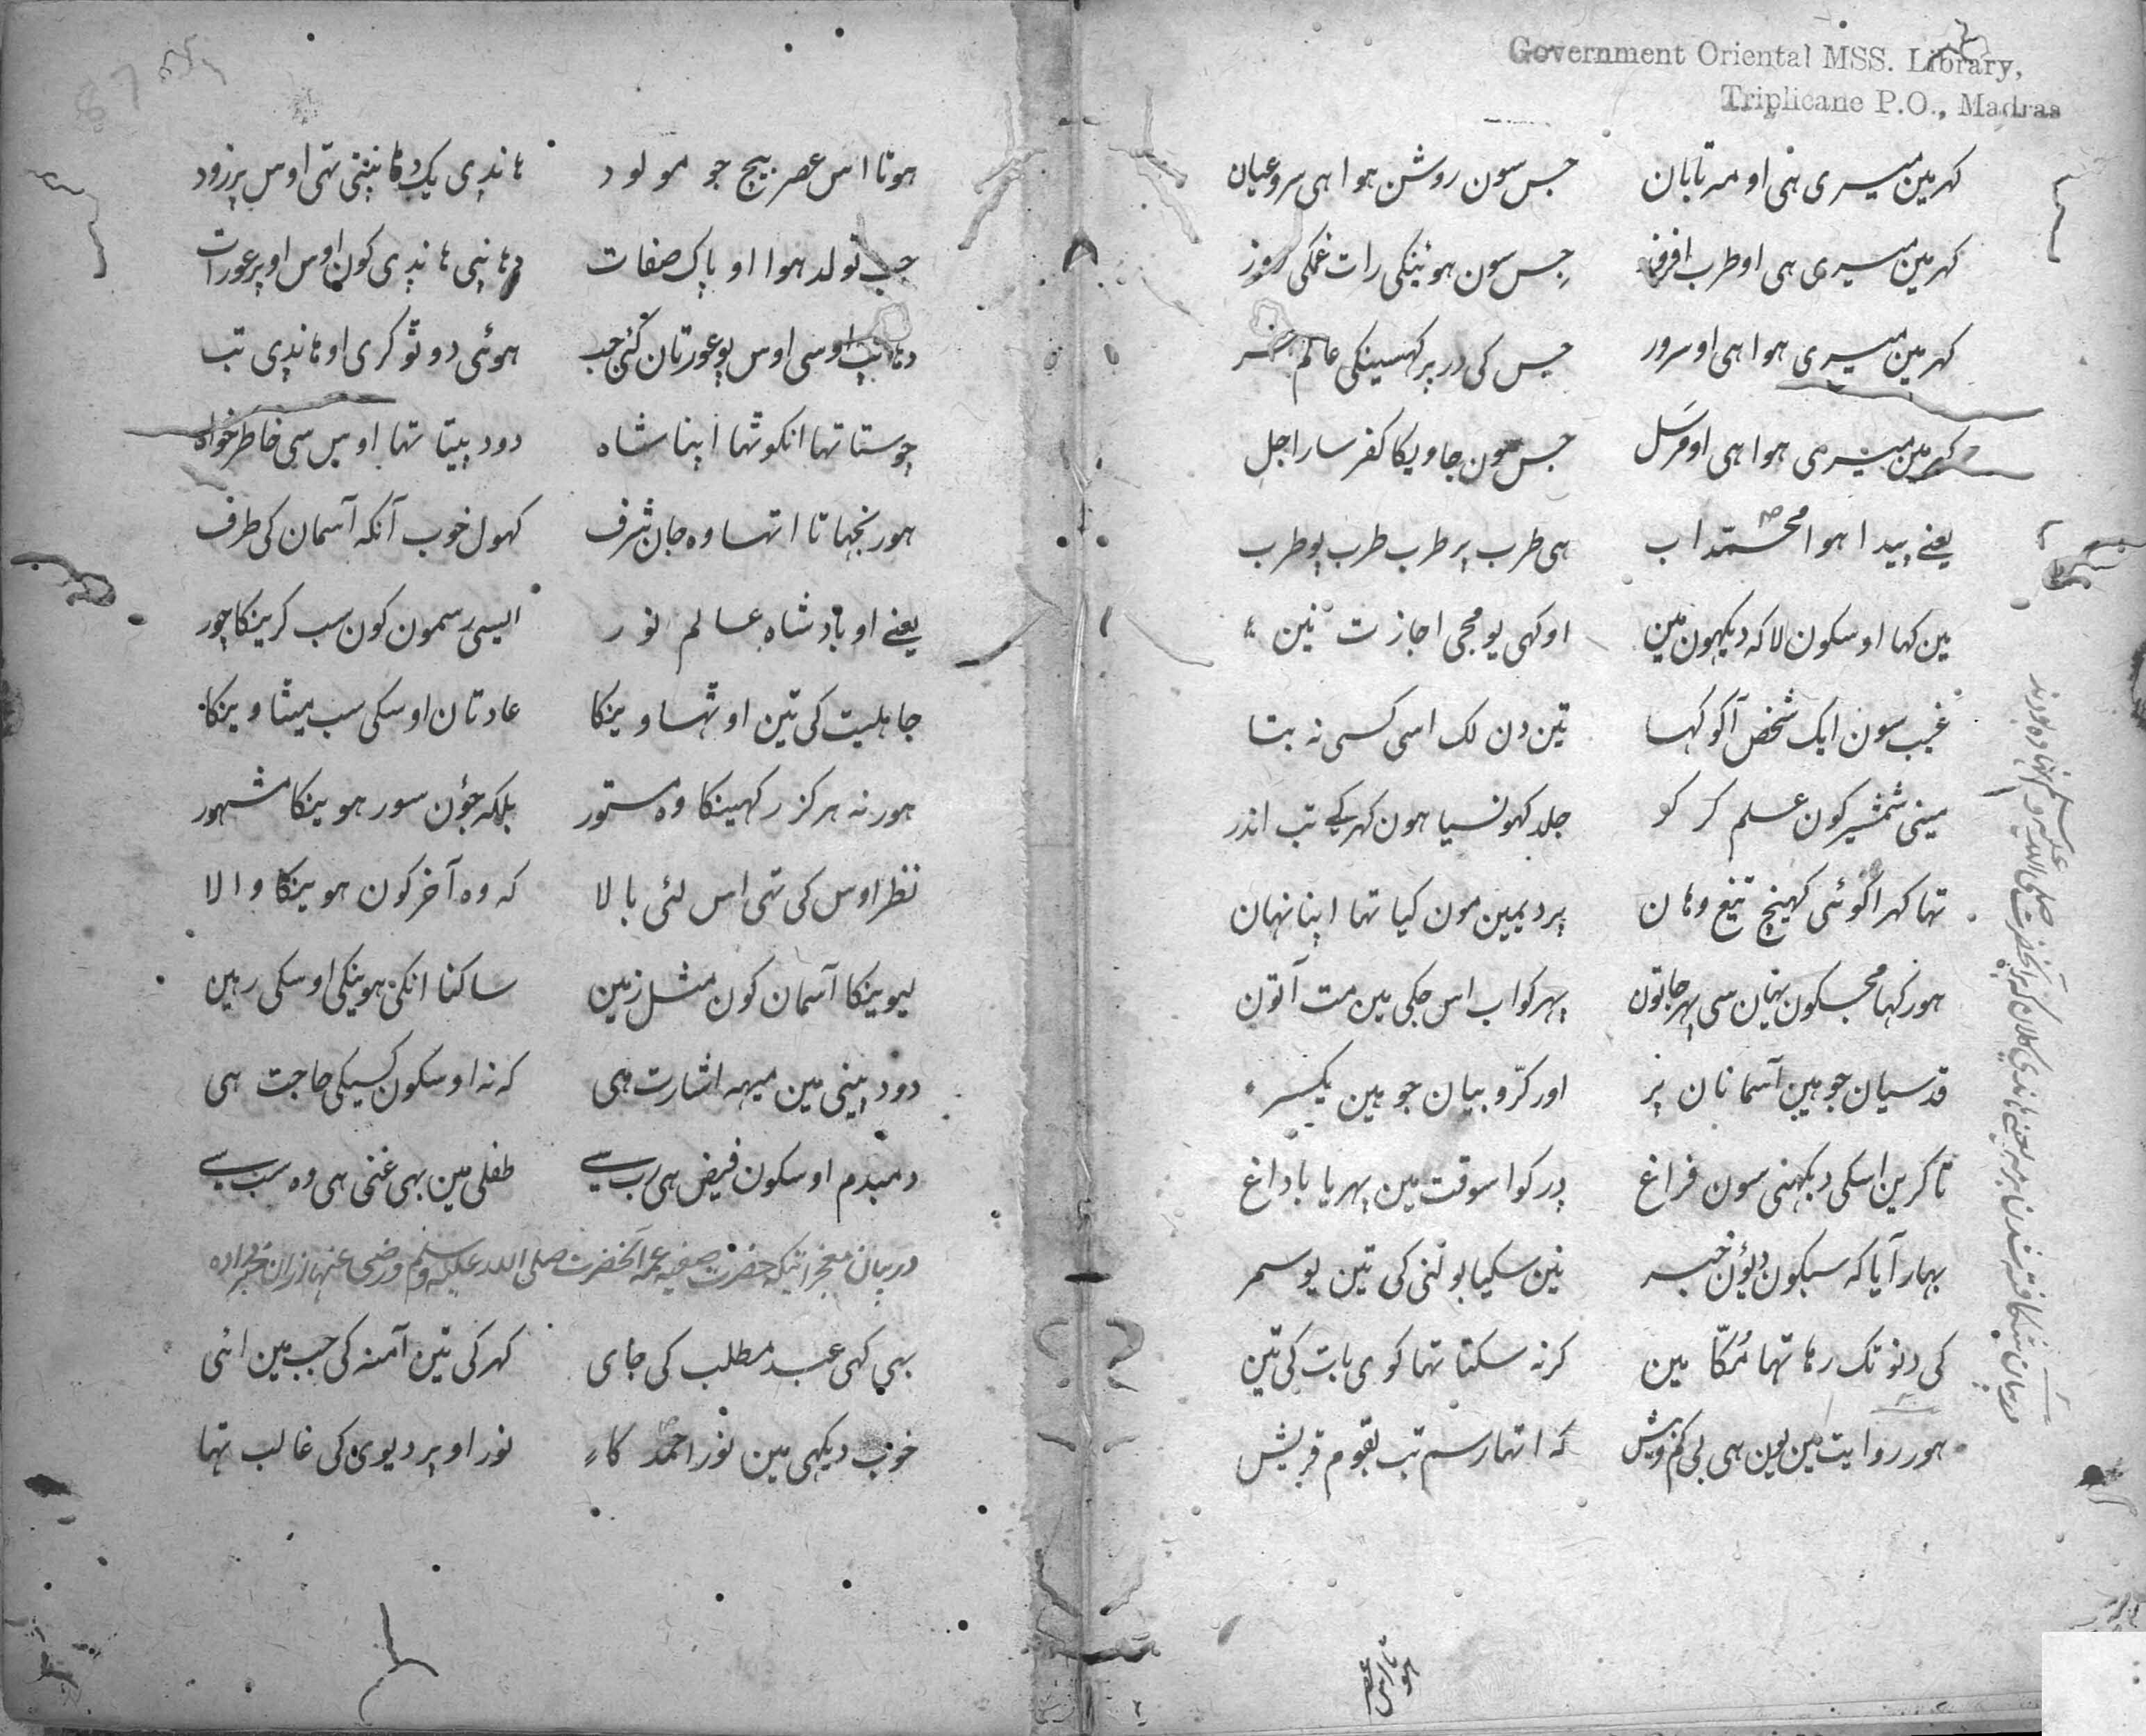 Government Oriental MSS. Library,
Triplicane P.O., Madras
کهر مین میری هی او مه تابان جس سون روشن هوا هی سرو عیان
کهر مین میری هی او طرب افروز جس سون هوئینکی رات غمکی روز
کهر مین میری هوا هی او سرور جس کی در پر کهسینکی عالم سر
کهر مین میری هوا هی او مرسل جس سون جاویکا کفر سارا جل
یعنے پیدا هوا محمد اب هی طرب پر طرب طرب پو طرب
مین کها اوسکون لا که دیکهون مین او کهی یو مجی اجازت نین
غیب سون ایک شخص آکو کها تین دن لک اسی کسی نه بتا
مینی شمشیر کون علم کر کو جلد کهونسیا هون کهر کے تب اندر
تها کهرا کوئی کهینچ تیغ وهان پرد یمین مون کیا تها اپنا نهان
هور کها مجکون نهان سی پهر جاتون پهر کو اب اس جکی مین مت آتون
قدسیان جو هین آسمانان پر اور کروبیان جو هین یکسر
تا کرین اسکی دیکهنی سون فراغ در کو اسوقت مین پهریا با داغ
بهار آیا که سبکون دیؤن خبر نین سکیا بولنی کی تین یو سمر
کی دنو تک رها تها مکّا مین کر نه سکتا تها کوی بات کی تین
هور روایت مین یون هی بی کم و بیش که اتها رسم تب بقوم قریش
هوتا اس عصر
هوتا اس عصر بیچ جو مولود هاندی یک دهانپتی تهی اوس پر زود
جب تولد هوا او پاک صفات دهانپی هاندی کون اوس اوپر عورات
دهانپ اوسی اوس پو عورتان کئی جب هوئی دو توکری او هاندی تب
چوستا تها انکوتها اپنا شاه دود پیتا تها اوس سی خاطر خواه
هور نجهاتا اتها وه جان شرف کهول خوب آنکه آسمان کی طرف
یعنے او بادشاه عالم نور ایسی رسمون کون سب کرینکا چور
جاهلیت کی تین اوتهاوینکا عادتان اوسکی سب میتاوینکا
هور نه هرکز رکهینکا وه مستور بلکه جؤن سور هوینکا مشهور
نظر اوس کی تهی اس لئی بالا که وه آخر کون هوینکا والا
لیوینکا آسمان کون مثل زمین ساکنا انکی هوینکی اوسکی رهین
دود پینی مین میهه اشارت هی که نه اوسکون کسیکی حاجت هی
دمبدم اوسکون فیض هی رب سے طفلی مین بهی غنی هی وه سب سے
در بیان معجزاتیکه حضرت صفیه عمه آنحضرت صلی الله علیه وسلم ورضی عنها ازان خبر داده
بهی کهی عبد مطلب کی جای کهر کی تین آمنه کی جب مین ائی
خوب دیکهی مین نور احمد کا نور اوپر دیوی کی غالب تها